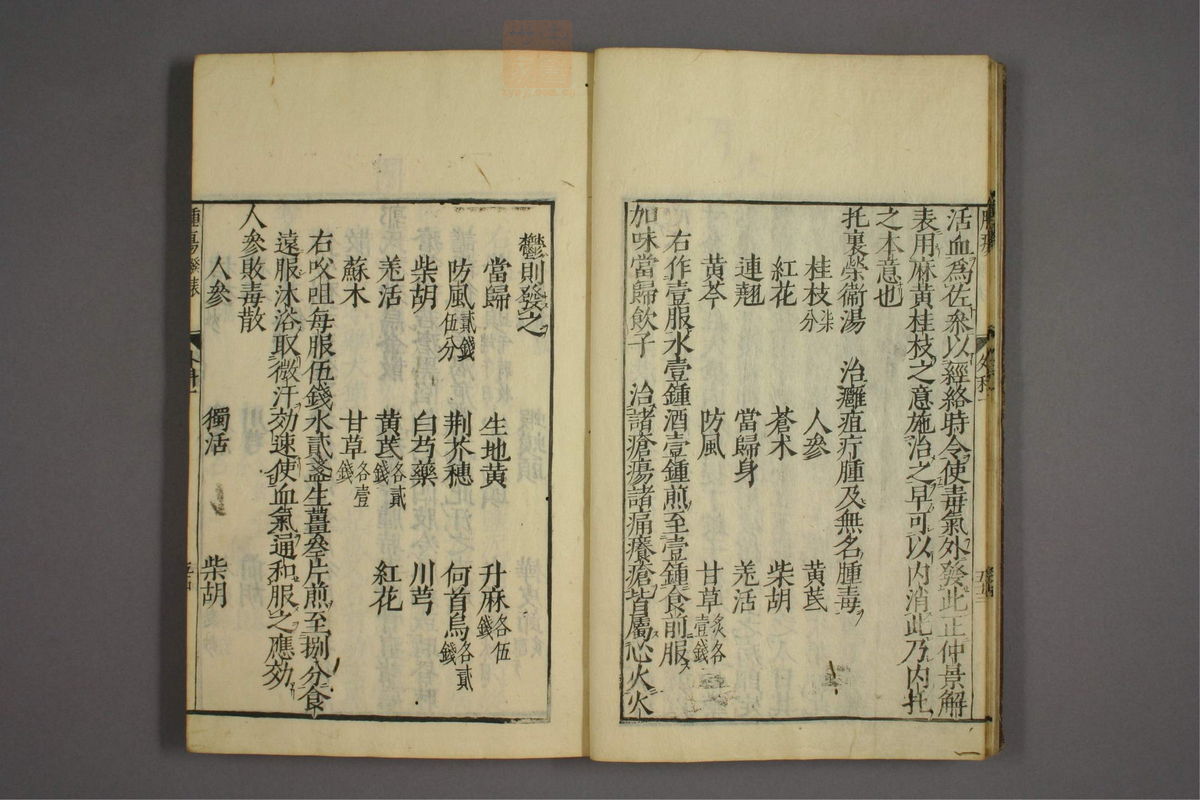 活血為佐叅以經絡時令使毒氣外發此正仲景解
表用麻黃桂枝之意施治之早可以内消此乃内托
之本意也
托裏榮衞湯　治癰疽疔腫及無名腫毒
桂枝柒分　人參　黃芪
紅花　蒼术　柴胡
連翹　當歸身　羌活
黃芩　防風　甘草炙各壹錢
右作壹服水壹鍾酒壹鍾煎至壹鍾食前服
加味當歸飲子　治諸瘡瘍諸痛癢瘡皆屬心火火
鬱則發之
當歸　生地黃　升麻各伍錢
防風貳錢伍分　荆芥穗　何首烏各貳錢
柴胡　白芍藥　川芎
羌活　黃芪各貳錢　紅花
蘇木　甘草各壹錢
右㕮咀每服伍錢水貳盞生薑叄片煎至捌分食
遠服沐浴取微汗効速使血氣通和服之應効
人參敗毒散
人參　獨活　柴胡